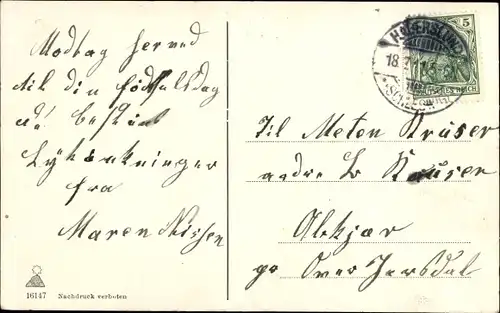 Modtag herved
til din fødselsdag
de bedste
Lykønskninger
fra
Maren Nissen
16147 Nachdruck verboten
HADERSLEBEN
18.7.
(SCHLESWIG)
5
DEUTSCHES REICH
Til Meten Krüser
andr. L. Krusen
Abkjær
pr Over Jersdal